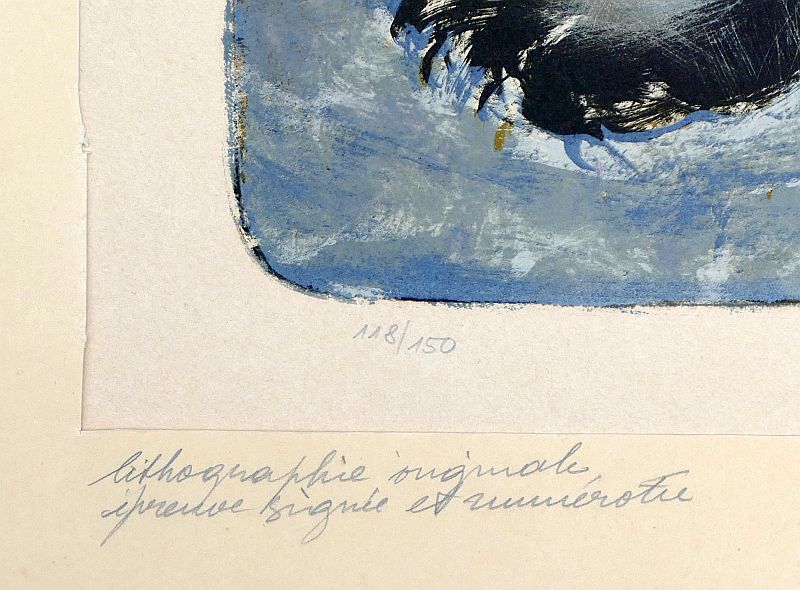 118/150
lithographie originale
épreuve signée et numérotée